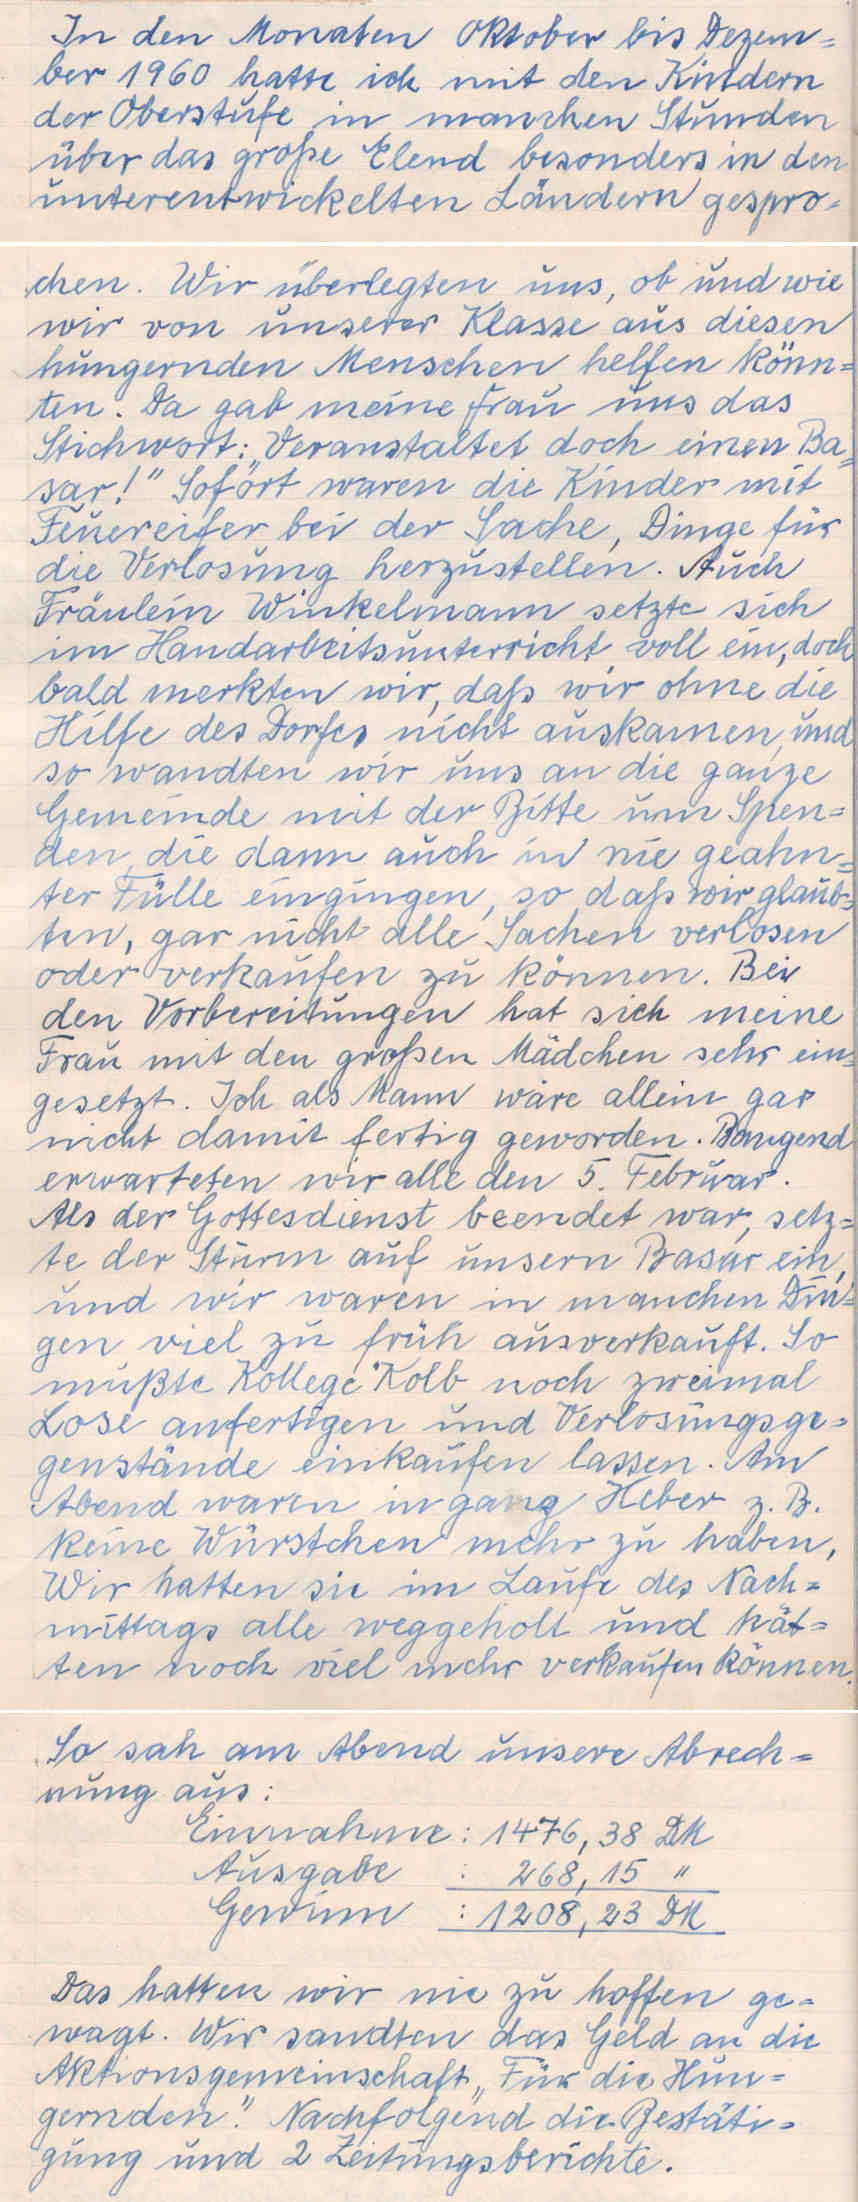 In den Monaten Oktober bis Dezem=
ber 1960 hatte ich mit den Kindern
der Oberstufe in manchen Stunden
über das große Elend besonders in den
unterentwickelten Ländern gespro=
chen. Wir überlegten uns, ob und wie
wir von unserer Klasse aus diesen
hungernden Menschen helfen könn=
ten. Da gab meine Frau uns das
Stichwort: „Veranstaltet doch einen Ba=
sar!" Sofort waren die Kinder mit
Feuereifer bei der Sache, Dinge für
die Verlosung herzustellen. Auch
Fräulein Winkelmann setzte sich
im Handarbeitsunterricht voll ein, doch
bald merkten wir, daß wir ohne die
Hilfe des Dorfes nicht auskamen, und
so wandten wir uns an die ganze
Gemeinde mit der Bitte um Spen=
den, die dann auch in nie geahn=
ter Fülle eingingen, so daß wir glaub=
ten, gar nicht alle Sachen verlosen
oder verkaufen zu können. Bei
den Vorbereitungen hat sich meine
Frau mit den großen Mädchen sehr ein=
gesetzt. Ich als Mann wäre allein gar
nicht damit fertig geworden. Bangend
erwarteten wir alle den 5. Februar.
Als der Gottesdienst beendet war, setz=
te der Sturm auf unsern Basar ein,
und wir waren in manchen Din=
gen viel zu früh ausverkauft. So
mußte Kollege Kolb noch zweimal
Lose anfertigen und Verlosungsge=
genstände einkaufen lassen. Am
Abend waren in ganz Heber z. B.
keine Würstchen mehr zu haben,
Wir hatten sie im Laufe des Nach=
mittags alle weggeholt und hät=
ten noch viel mehr verkaufen können.
So sah am Abend unsere Abrech=
nung aus:
Einnahme : 1476,38 DM
Ausgabe : 268,15 "
Gewinn : 1208,23 DM
Das hatten wir nie zu hoffen ge=
wagt. Wir sandten das Geld an die
Aktionsgemeinschaft „Für die Hun=
gernden". Nachfolgend die Bestäti=
gung und 2 Zeitungsberichte.